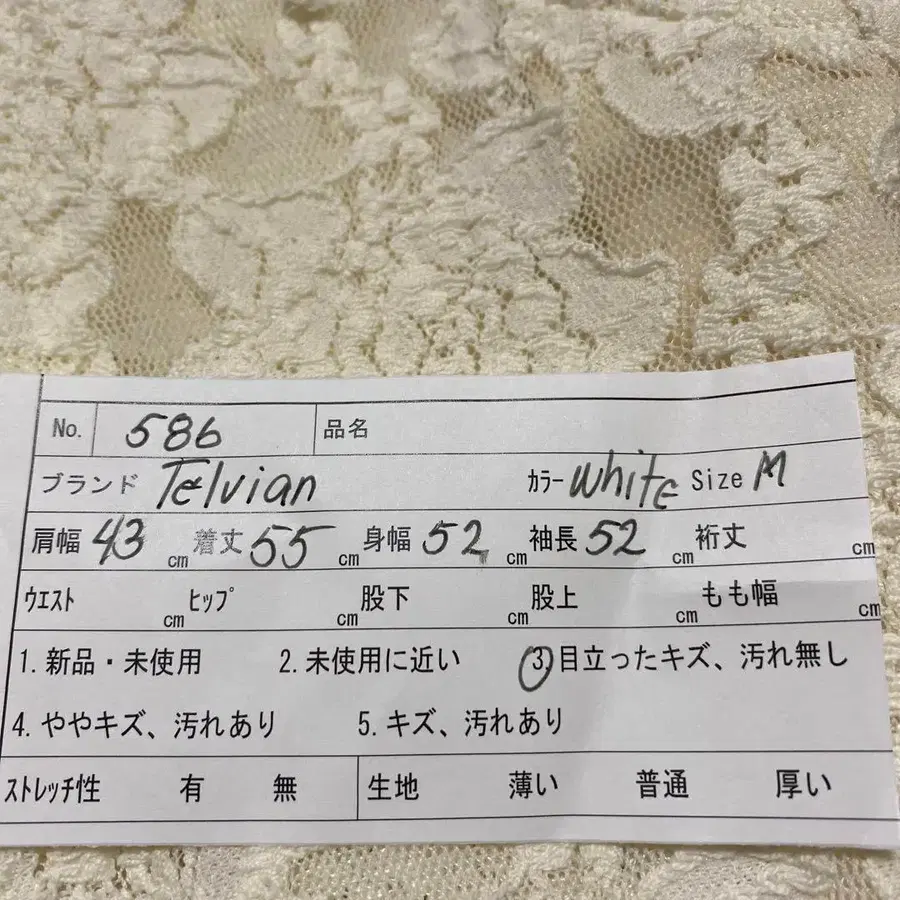 No. 586 品名
ブランド Telvian カラー White Size M
肩幅 43 cm 着丈 55 cm 身幅 52 cm 袖長 52 cm 裄丈 cm
ウエスト cm ヒップ cm 股下 cm 股上 cm もも幅 cm
1. 新品・未使用 2. 未使用に近い 3. 目立ったキズ、汚れ無し
4. ややキズ、汚れあり 5. キズ、汚れあり
ストレッチ性 有 無 生地 薄い 普通 厚い